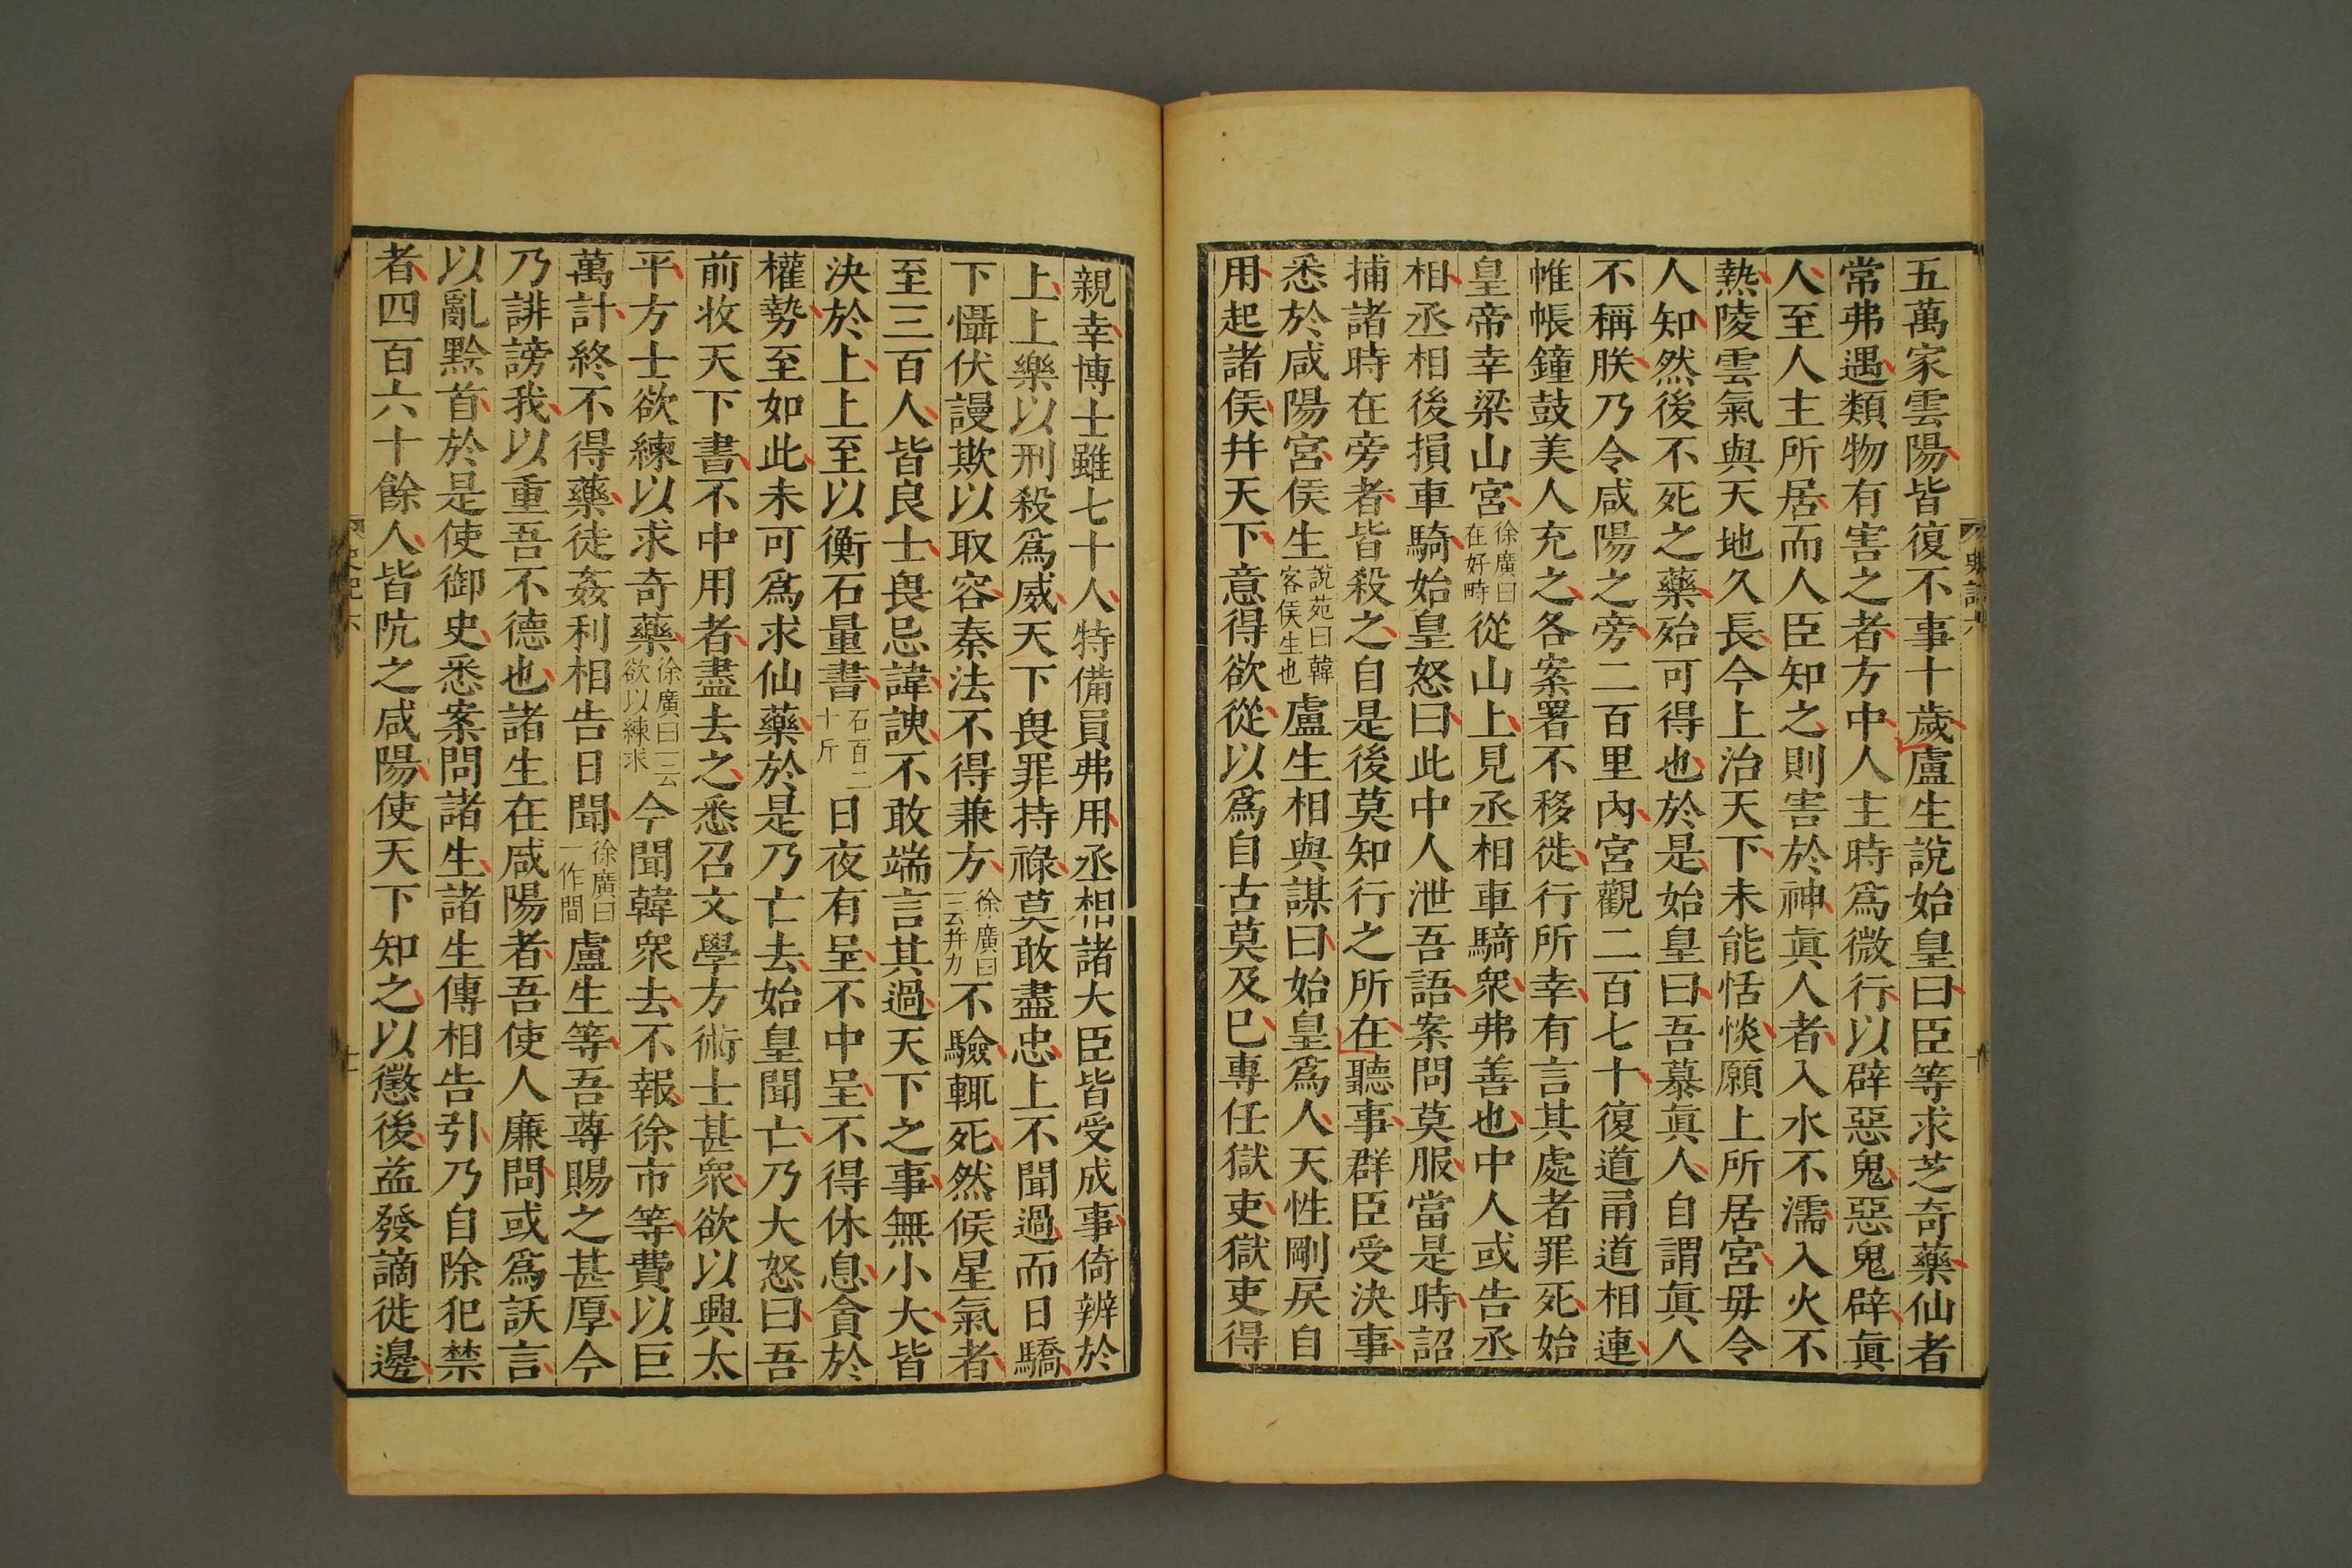 五萬家雲陽皆復不事十歲盧生說始皇曰臣等求芝奇藥仙者
常弗遇類物有害之者方中人主時爲微行以辟惡鬼惡鬼辟眞
人至人主所居而人臣知之則害於神眞人者入水不濡入火不
熱陵雲氣與天地久長今上治天下未能恬惔願上所居宮毋令
人知然後不死之藥殆可得也於是始皇曰吾慕眞人自謂眞人
不稱朕乃令咸陽之旁二百里內宮觀二百七十復道甬道相連
帷帳鐘鼓美人充之各案署不移徙行所幸有言其處者罪死始
皇帝幸梁山宮徐廣曰在好畤從山上見丞相車騎衆弗善也中人或告丞
相丞相後損車騎始皇怒曰此中人泄吾語案問莫服當是時詔
捕諸時在旁者皆殺之自是後莫知行之所在聽事群臣受決事
悉於咸陽宮侯生說苑曰韓客侯生也盧生相與謀曰始皇爲人天性剛戾自
用起諸侯幷天下意得欲從以爲自古莫及已專任獄吏獄吏得
親幸博士雖七十人特備員弗用丞相諸大臣皆受成事倚辨於
上上樂以刑殺爲威天下畏罪持祿莫敢盡忠上不聞過而日驕
下懾伏謾欺以取容秦法不得兼方徐廣曰一云幷力不驗輒死然候星氣者
至三百人皆良士畏忌諱諛不敢端言其過天下之事無小大皆
決於上上至以衡石量書石百二十斤日夜有呈不中呈不得休息貪於
權勢至如此未可爲求仙藥於是乃亡去始皇聞亡乃大怒曰吾
前收天下書不中用者盡去之悉召文學方術士甚衆欲以興太
平方士欲練以求奇藥徐廣曰一云欲以練求今聞韓衆去不報徐市等費以巨
萬計終不得藥徒姦利相告日聞徐廣曰一作間盧生等吾尊賜之甚厚今
乃誹謗我以重吾不德也諸生在咸陽者吾使人廉問或爲訞言
以亂黔首於是使御史悉案問諸生諸生傳相告引乃自除犯禁
者四百六十餘人皆阬之咸陽使天下知之以懲後益發謫徙邊